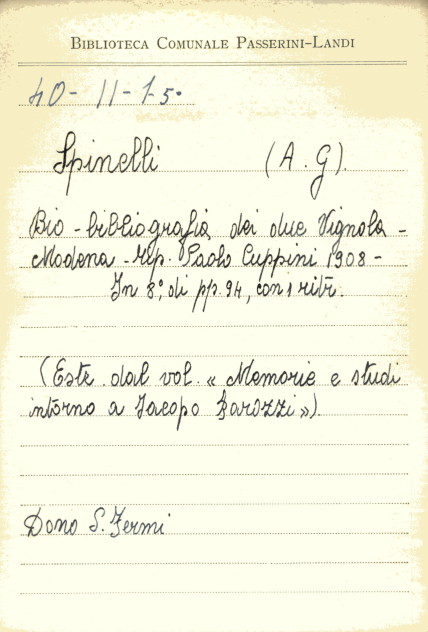 BIBLIOTECA COMUNALE PASSERINI-LANDI
40-11-15.
Spinelli (A. G).
Bio-bibliografia dei due Vignola -
Modena - tip. Paolo Cuppini 1908 -
In 8°, di pp. 94, con 1 ritr.
(Estr. dal vol. « Memorie e studi
intorno a Jacopo Barozzi »)
Dono S. Fermi